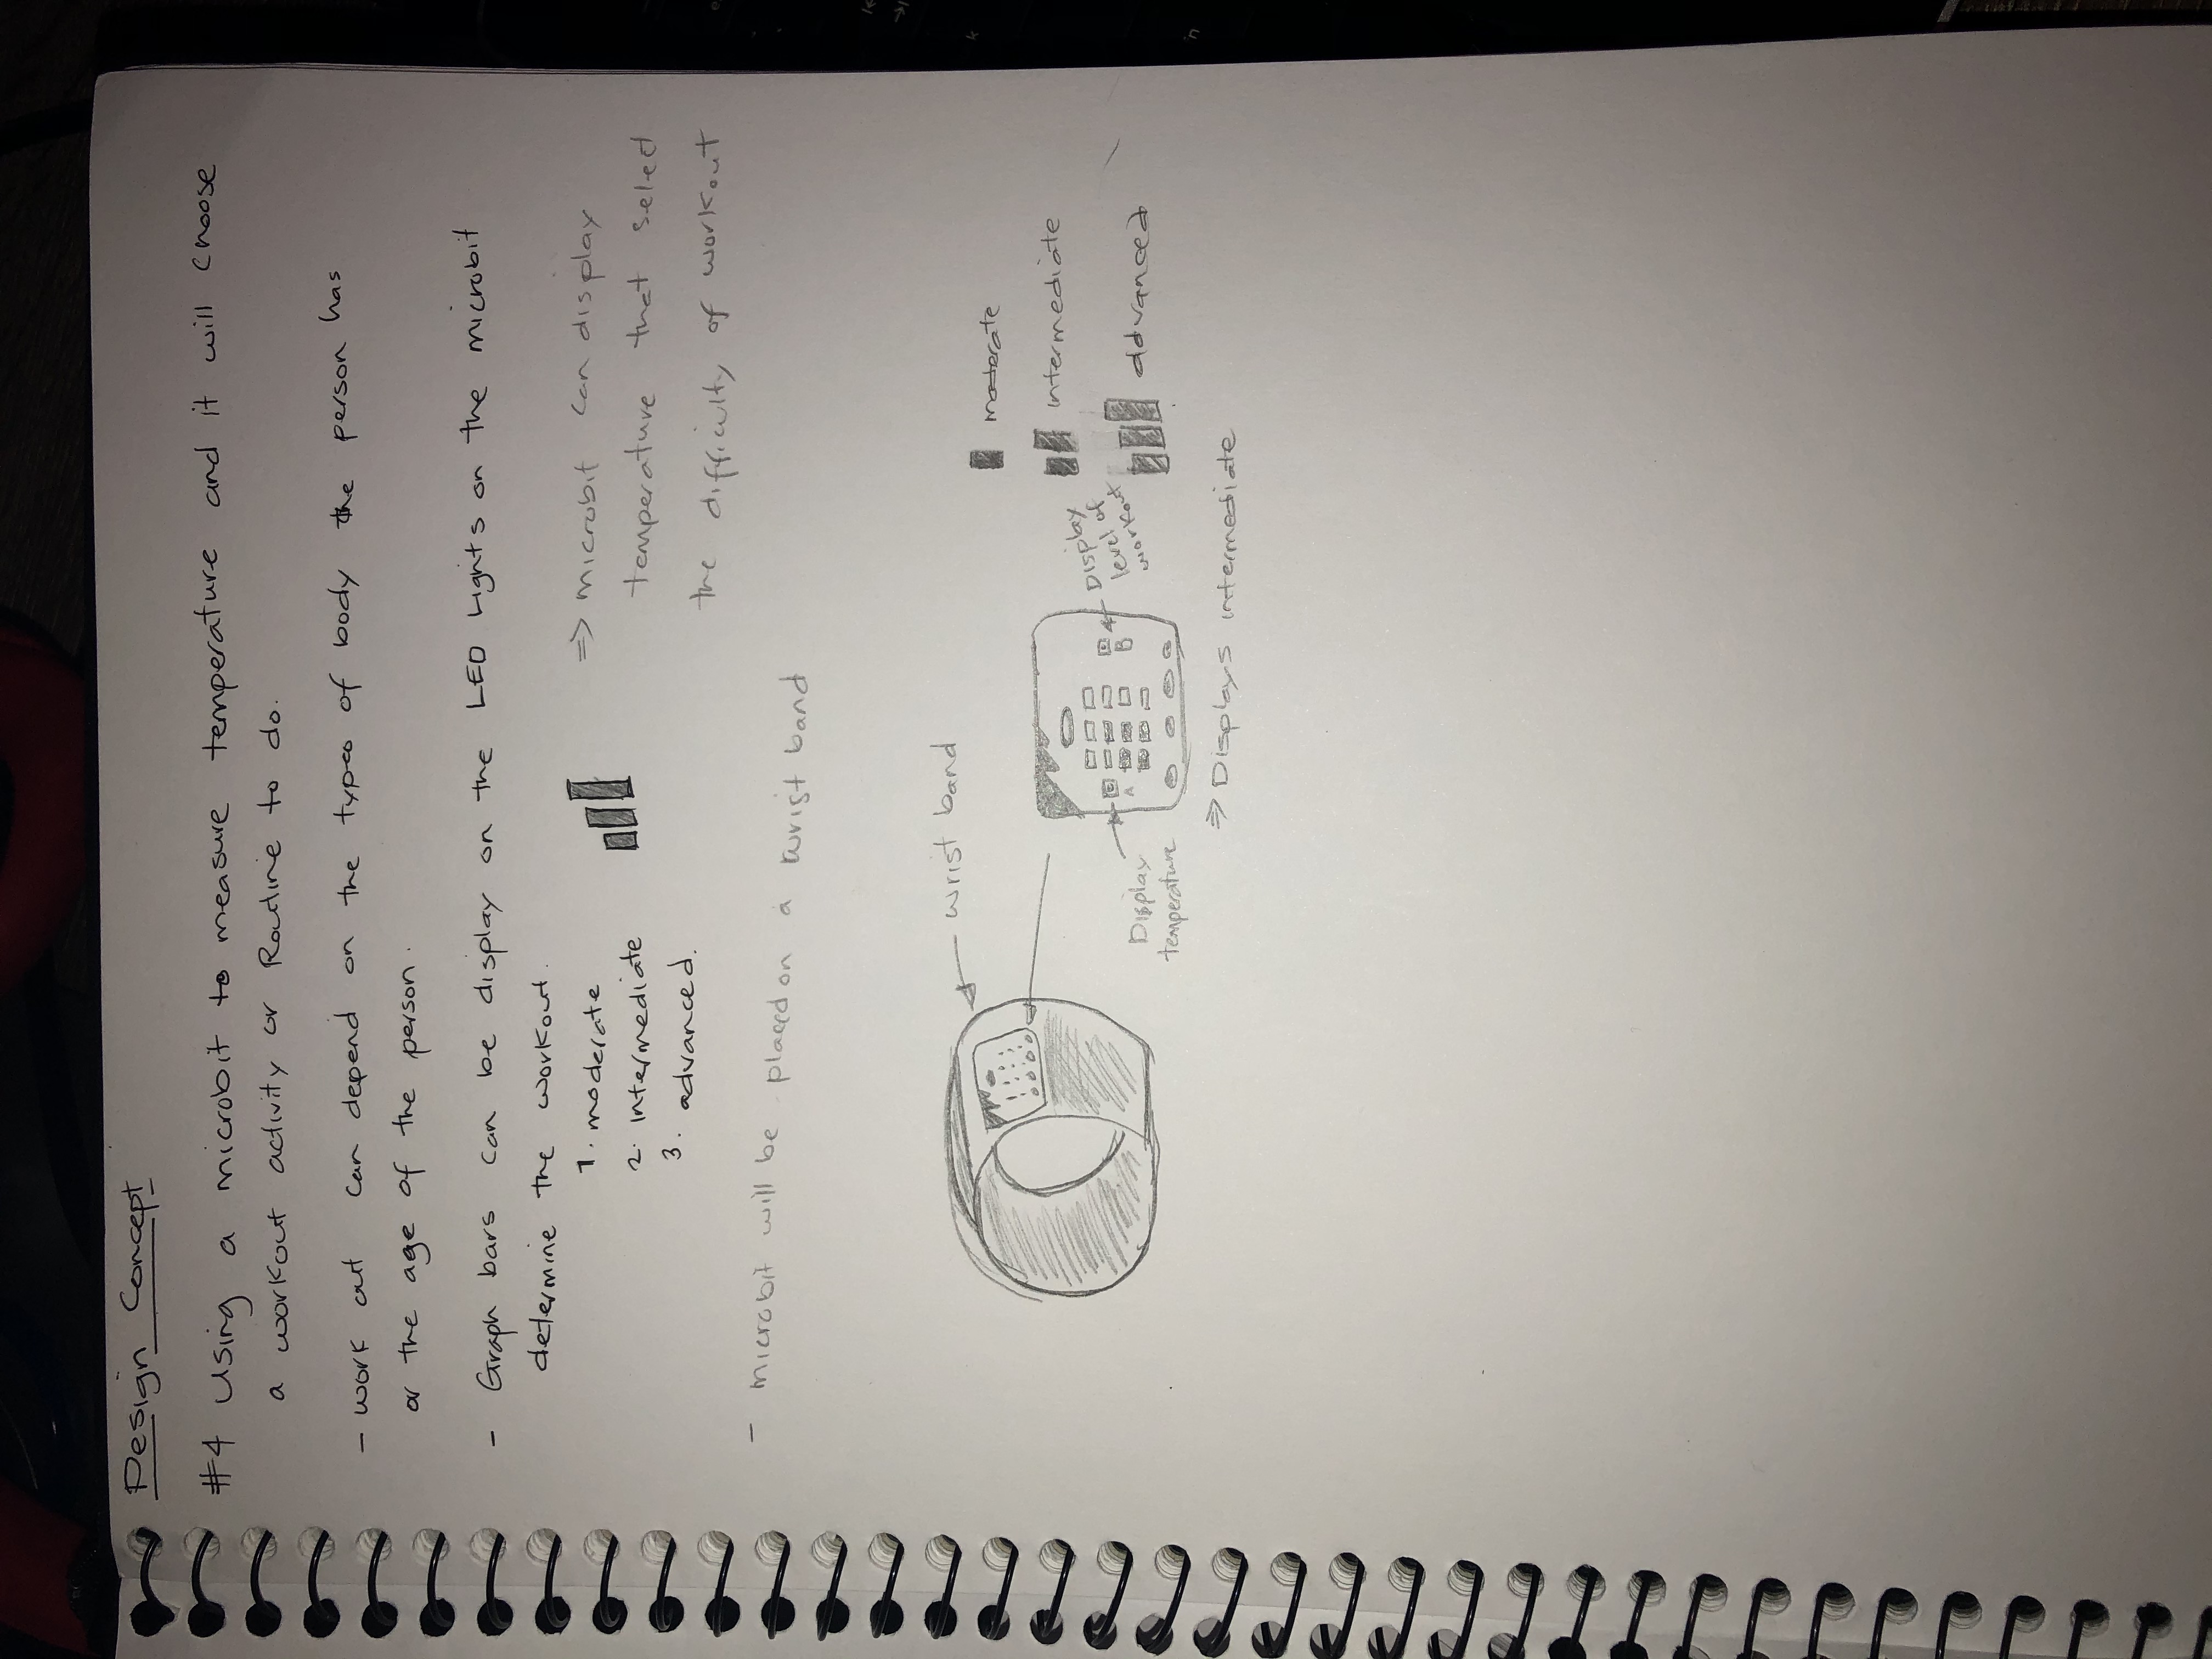 Design Concept
#4 Using a microbit to measure temperature and it will choose
a workout activity or Routine to do.
- work out can depend on the types of body the person has
or the age of the person.
- Graph bars can be display on the LED Lights on the microbit
determine the workout.
1. moderate
2. intermediate
3. advanced.
=> microbit can display
temperature that select
the difficulty of workout
- microbit will be placed on a wrist band
wrist band
Display
temperature
A
B
Display
level of
workout
=> Displays intermediate
moderate
intermediate
advanced